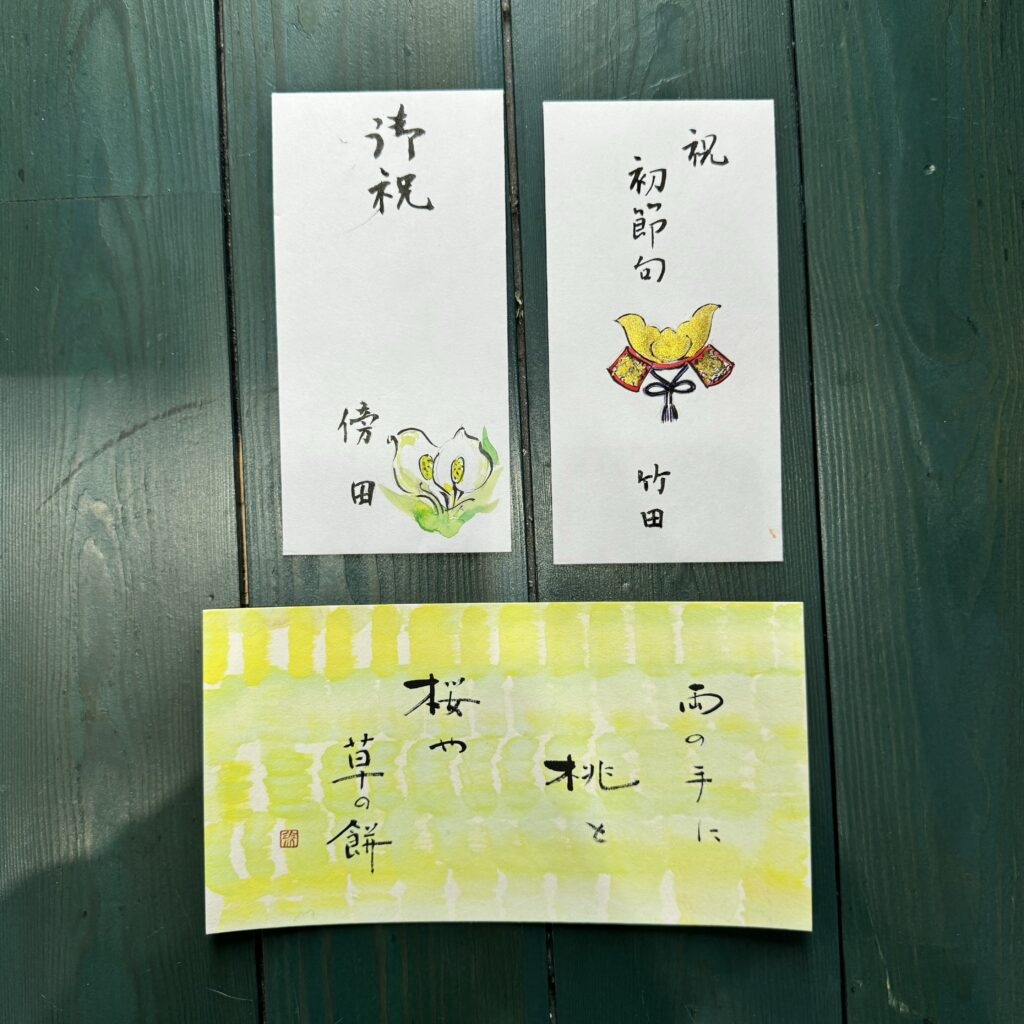 御祝
傍田
祝
初節句
竹田
両の手に
桃と
桜や
草の餅